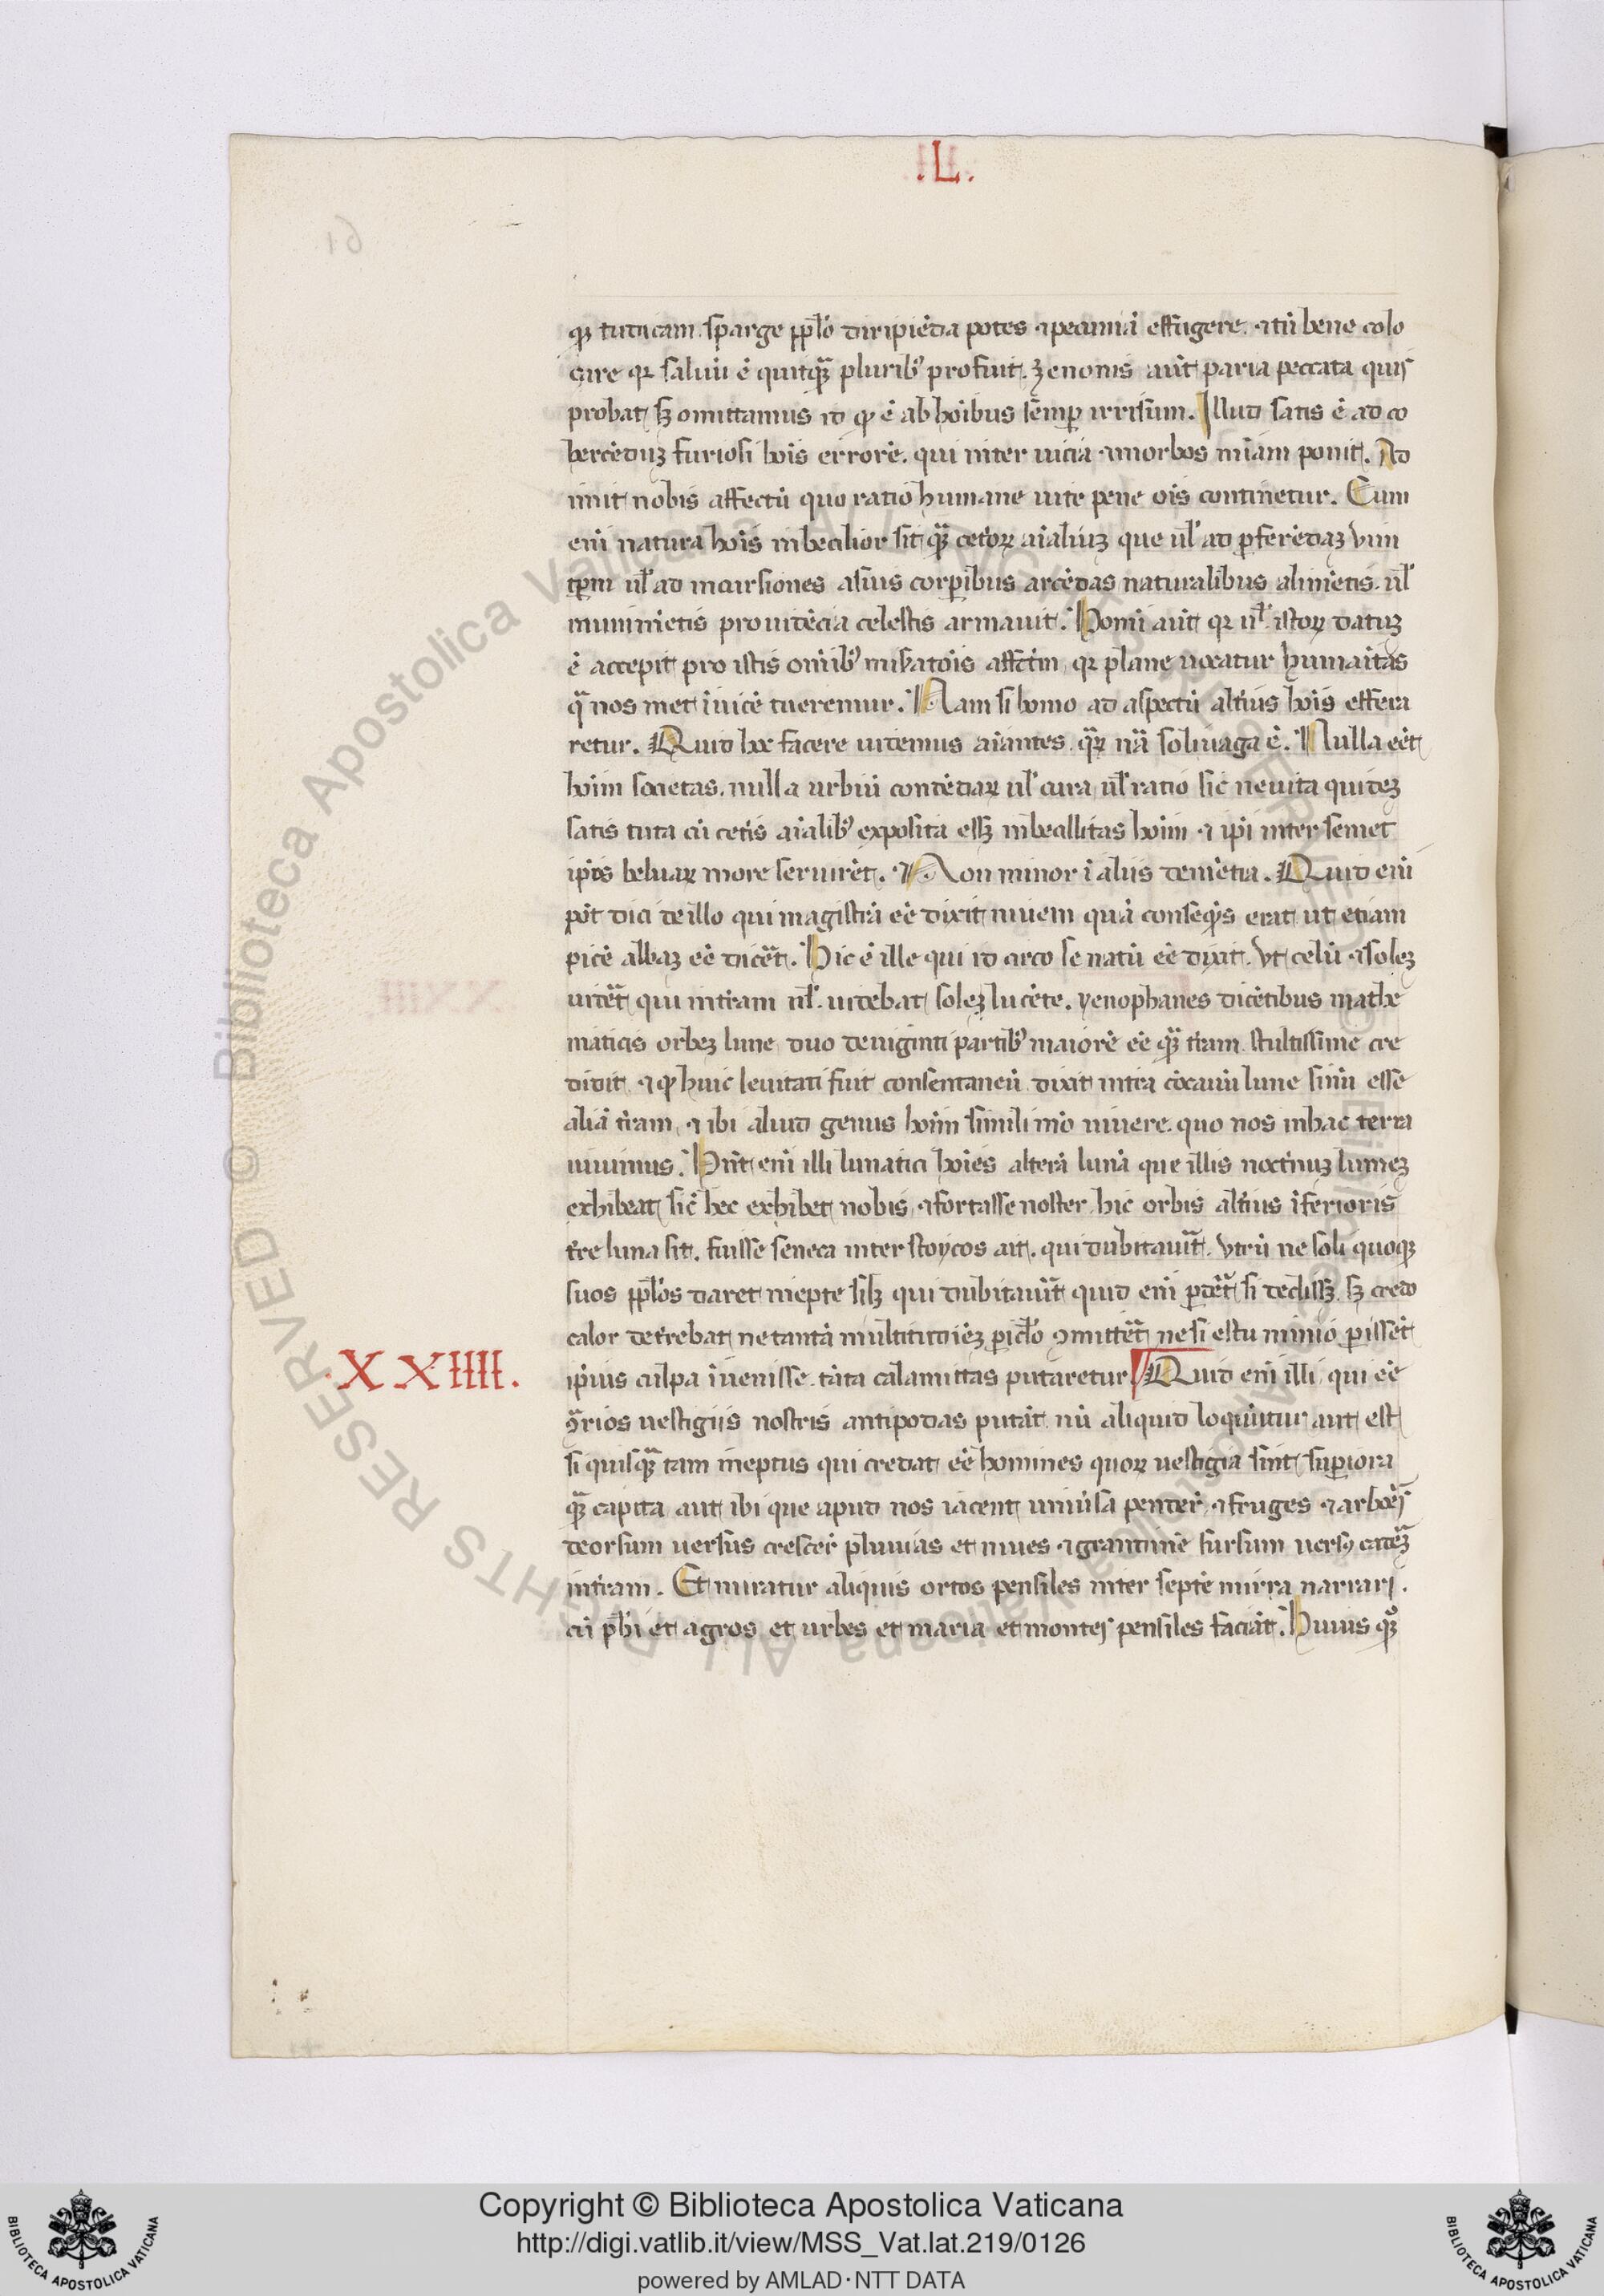 .L.
qꝫ tuciam. sparge pp̄lo diripiēda potes ⁊ pecuniā effugere. ⁊ tū bene colo
care qꝛ saluū ē quitqꝫ pluribꝰ profuit. Zenonis aūt paria peccata quis
probat sꝫ omittamus id qꝫ ē ab hoībus semꝑ irrisum. Illud satis ē ad co
hercēduꝫ furiosi hoīs errorē. qui inter uicia ⁊ morbos miām ponit. Ad
imit nobis affectū quo ratio humane uite pene oīs continetur. Cum
eni natura hoīs inbecilior sit qꝫ cetoꝝ aīaliuꝫ que ul̄ ad ꝑferēdaꝫ uim
tꝑm ul̄ ad incursiones a suis corꝑibus arcēdas naturalibus alimētis. ul̄
munimētis prouidēcia celestis armauit. Homi aūt qꝛ nl̄ istoꝝ datuꝫ
ē accepit pro istis omībꝰ misatōis affctm qꝛ plane uocatur humaītas
q̄ nos met īuicē tueremur. Nam si homo ad aspectū altius hoīs effera
retur. Quid hoc facere uidemus aiantes. quaꝝ nā soliuaga ē. Nulla eēt
hoīm societas. nulla urbiū condēdaꝝ ul̄ cura ul̄ ratio sic ne uita quideꝫ
satis tuta cū cetīs aīalibꝰ exposita essꝫ inbecillitas hoīm ⁊ ipī inter semet
ipōs beluaꝝ more seruirēt. Non minor ī aliis demētia. Quid enī
pōt dici de illo qui nigrā eē dixit niuem quā conseqn̄s erat ut etiam
picē albaꝫ eē dicēt. Hic ē ille qui id circo se natū eē dixit. Vt celū ⁊ soleꝫ
uidēt qui in tīram nl̄ uidebat soleꝫ lucēte. Xenophanes dicētibus mathe
maticis orbeꝫ lune duo deuiginti partibꝰ maiorē eē qꝫ tīram stultissime cre
didit. ⁊ qꝫ huic leuitati fuit consentaneū dixit intra cōcauū lune sinū esse
aliā tīram. ⁊ ibi aliud genus hoīm simili mō uiuere. quo nos in hac terra
uiuimus. Hn̄t enī illi lunatici hoīes alterā lunā que illis noctīnuꝫ lumeꝫ
exhibeat sic̄ hec exhibet nobis ⁊ fortasse noster hic orbis altīus īferioris
tīre luna sit. fuisse seneca inter stoycos ait. qui dubitauīt. Vtrū ne soli quoqꝫ
suos pp̄los daret inepte sꝫ qui dubitauīt quid enī ꝑdēt si dedissꝫ. sꝫ credo
calor deterrebat ne tantā multitudīeꝫ ꝑiclō ꝯmittēt ne si estu nimio ꝑissēt
.XXIIII.
ipīus culpa īuenisse tāta calamitas putaretur Quid enī illi qui eē
ꝯrios uestigiis nostris antipodas putāt nū aliquid loquūtur aut est
si quisqꝫ tam ineptus qui credat eē homines quoꝝ uestigia sint suꝑiora
qꝫ capita aut ibi que apud nos iacent uniūsa pendēr. ⁊ fruges ⁊ arboēs
deorsum uersus crescēr pluuias et niues ⁊ grandinē sursum uersꝰ cadēꝫ
in tīram. Et miratur aliquis ortos pensiles inter septē mirra narrari.
cū phī et agros et urbes et maria et montes pensiles faciāt. Huius qꝫ
© Biblioteca Apostolica Vaticana ALL RIGHTS RESERVED
Copyright © Biblioteca Apostolica Vaticana
http://digi.vatlib.it/view/MSS_Vat.lat.219/0126
powered by AMLAD·NTT DATA
BIBLIOTECA APOSTOLICA VATICANA
BIBLIOTECA APOSTOLICA VATICANA